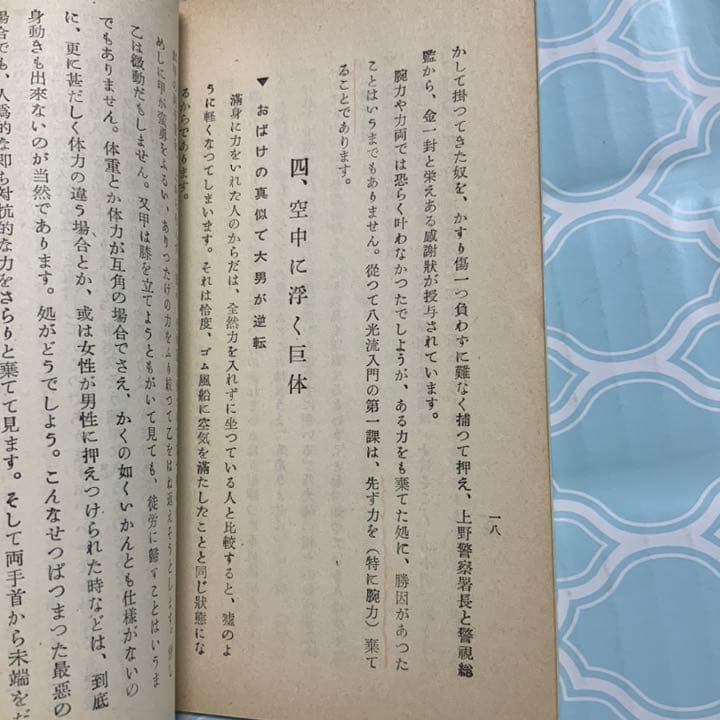 一八
かして掛つてきた奴を、かすり傷一つ負わずに難なく捕つて押え、上野警察署長と警視総
監から、金一封と栄えある感謝狀が授与されています。
腕力や力両では恐らく叶わなかつたでしようが、ある力をも棄てた処に、勝因があつた
ことはいうまでもありません。從つて八光流入門の第一課は、先ず力を（特に腕力）棄て
ることであります。
四、空中に浮く巨体
▼おばけの真似て大男が逆転
滿身に力をいれた人のからだは、全然力を入れずに坐つている人と比較すると、嘘のよ
うに軽くなつてしまいます。それは恰度、ゴム風船に空気を滿たしたことと同じ狀態にな
るからであります。
めしに甲が蛮勇をふるい、ありつたけの力をふり絞つて乙をはね返えそうとします。
乙は微動だもしません。又甲は膝を立てようともがいて見ても、徒労に歸すことはいうま
でもありません。体重とか体力が互角の場合でさえ、かくの如くいかんとも仕樣がないの
に、更に甚だしく体力の違う場合とか、或は女性が男性に押えつけられた時などは、到底
身動きも出來ないのが当然であります。処がどうでしよう。こんなせつぱつまつた最惡の
場合でも、人為的な即ち対抗的な力をさらりと棄てて見ます。そして両手首から末端をだ